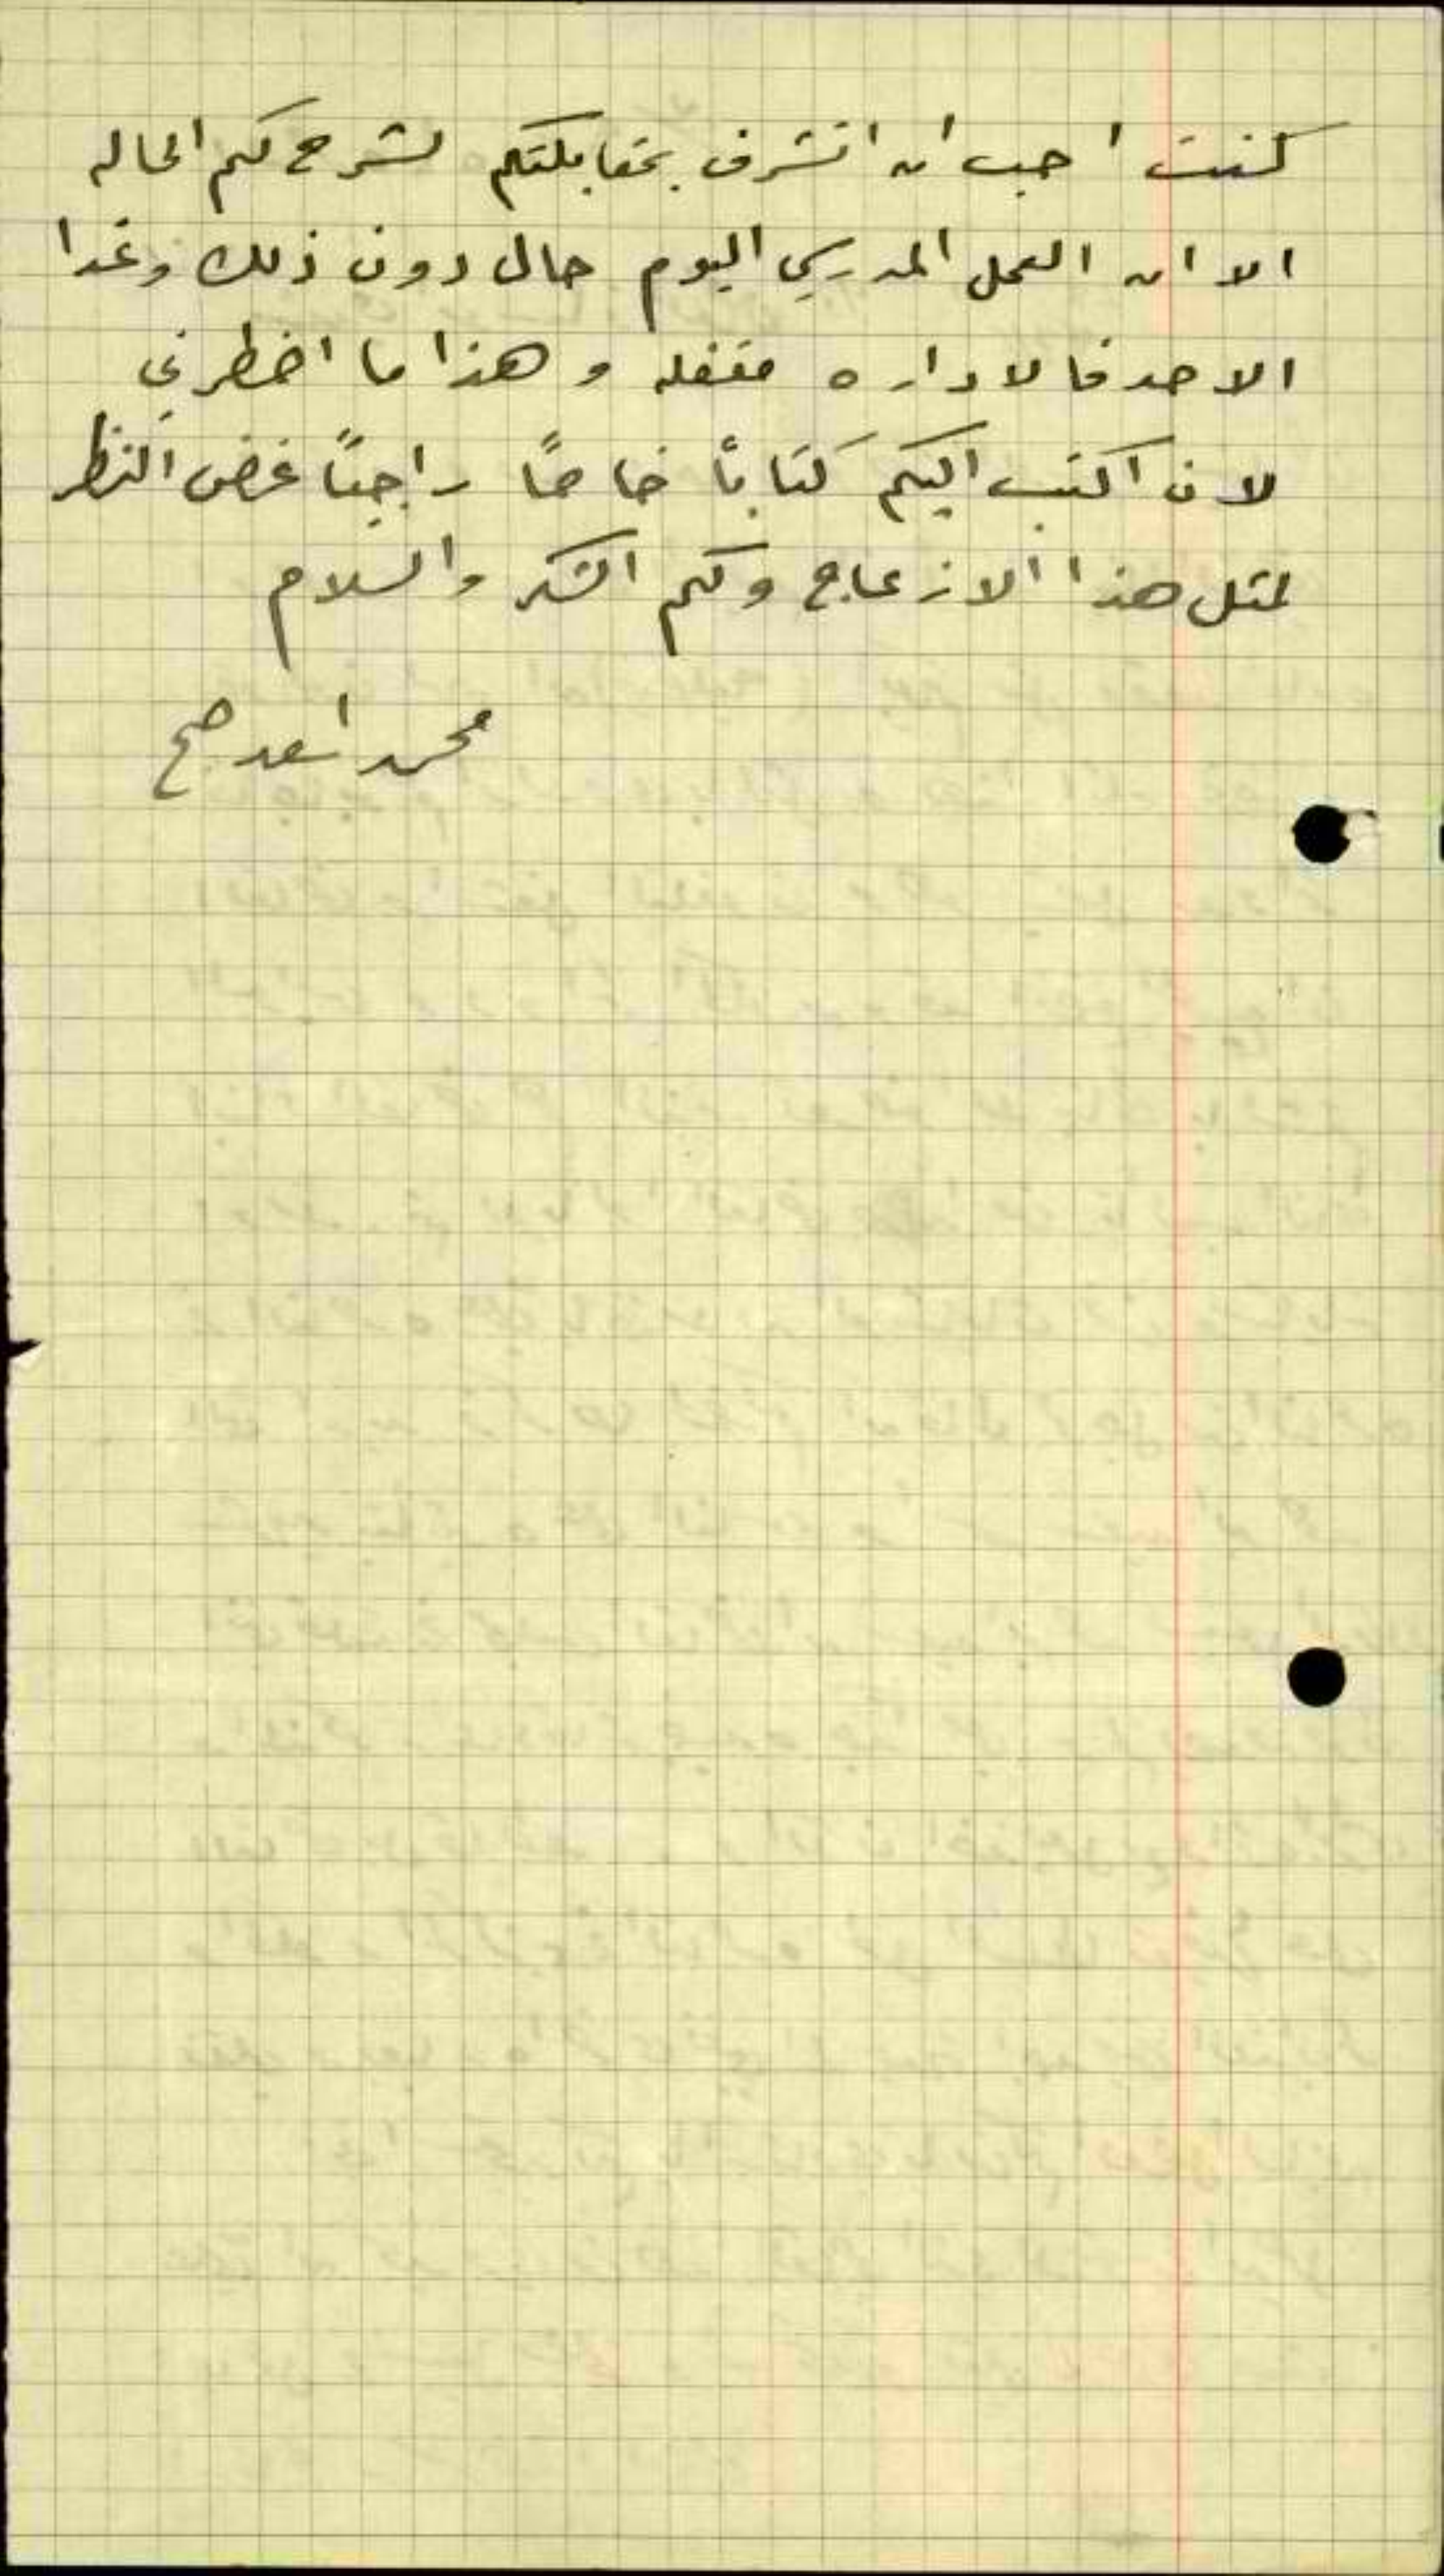 كنت احب ان اتشرف بمقابلتكم لشرح لكم الحاله
الا ان العمل المدرسي اليوم حال دون ذلك وغدا
الاحد فالاداره مقفله وهذا ما اضطرني
لان اكتب اليكم كتاباً خاصاً راجياً غض النظر
لمثل هذا الازعاج ولكم الشكر والسلام
محمد اسعد